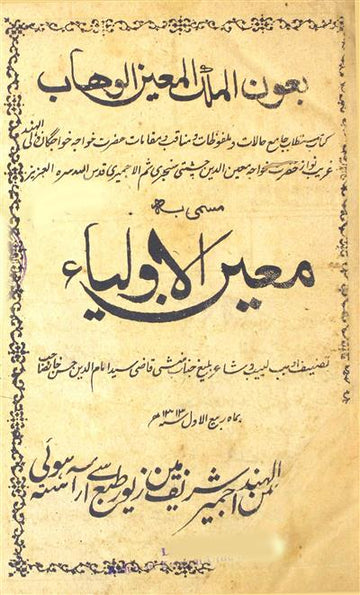 بعون الملک المعین الوہاب
کتاب مستطاب جامع حالات و ملفوظات و مناقب و مقامات حضرت خواجہ خواجگان والی الہند
غریب نواز حضرت خواجہ معین الدین چشتی سنجری ثم الاجمیری قدس اللہ سرہ العزیز
مسمی بہ
معین الاولیاء
تصنیف ادیب لبیب و شاعر بلیغ جناب منشی قاضی سید امام الدین حسن خانصاحب
بماہ ربیع الاول سنہ ۱۳۱۳ھ
من الہند اجمیر شریف میں زیور طبع سے آراستہ ہوئی